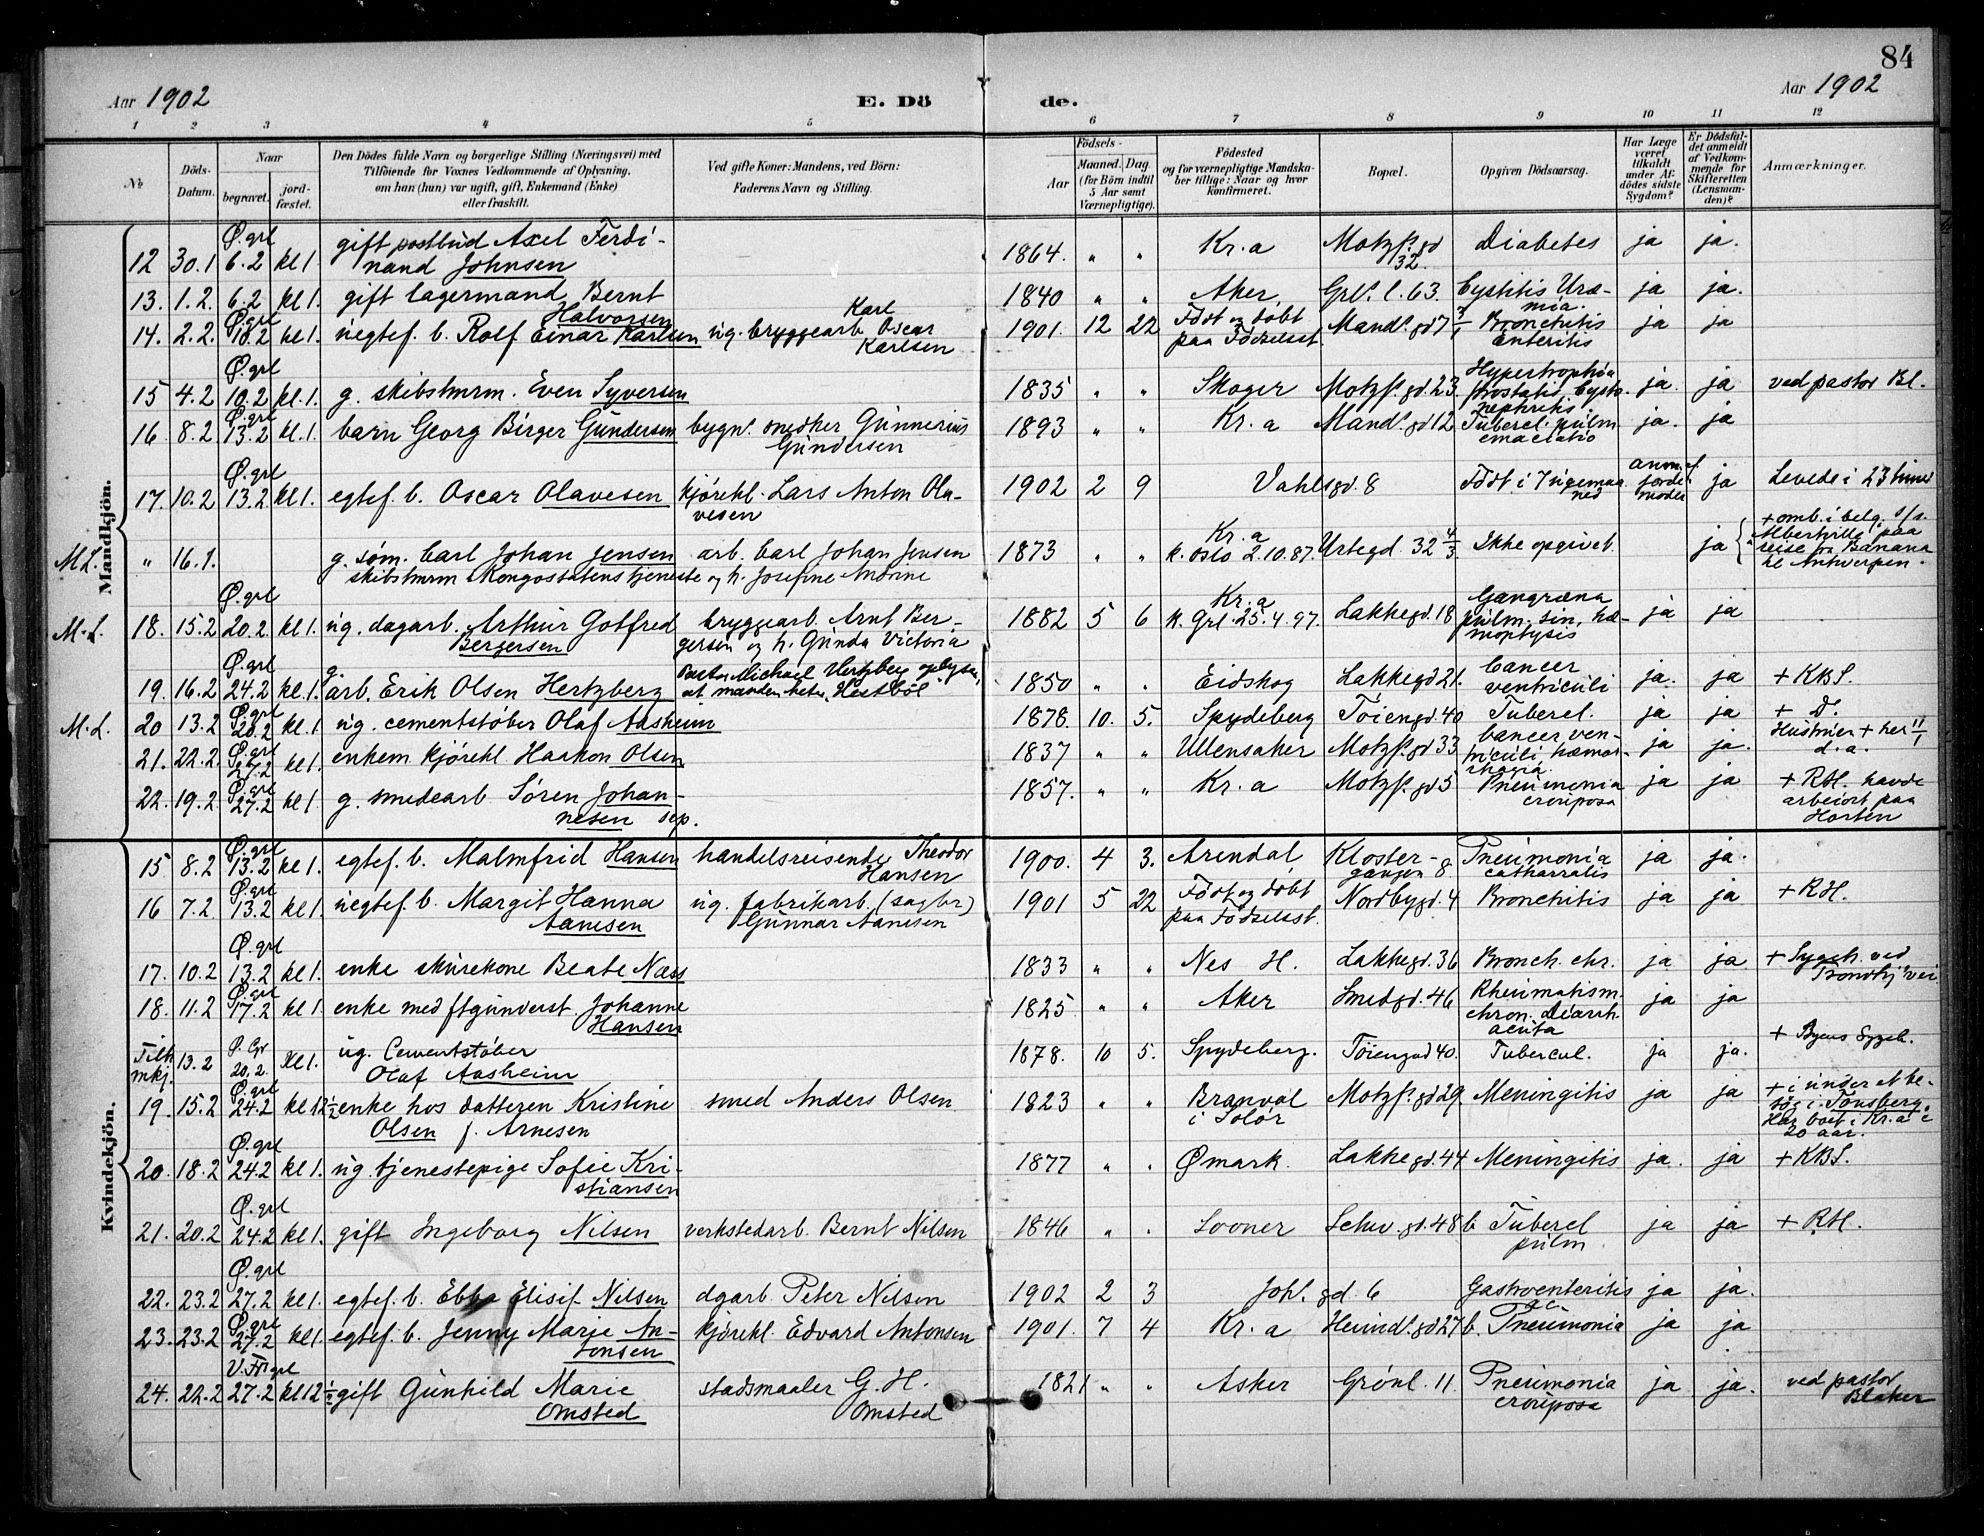 84
Aar 1902 E. Dö de. Aar 1902
1 2 3 4 5 6 7 8 9 10 11 12
№ Döds-Datum. Naar begravet. jordfæstet. Den Dödes fulde Navn og borgerlige Stilling (Næringsvei) med Tilföiende for Voxnes Vedkommende af Oplysning, om han (hun) var ugift, gift, Enkemand (Enke) eller fraskilt. Ved gifte Koner: Mandens, ved Börn: Faderens Navn og Stilling. Födsels- Aar Maaned. Dag. (for Börn indtil 5 Aar samt Værnepligtige). Födested og for værnepligtige Mandskaber tillige: Naar og hvor konfirmeret. Bopæl. Opgiven Dödsaarsag. Har Læge været tilkaldt under Afdödes sidste Sygdom? Er Dödsfaldet anmeldt af Vedkommende for Skifteretten (Lensmanden)? Anmærkninger.
Mandkjön.
12 30.1 Ø.grl 6.2 kl 1. gift postbud Axel Ferdinand Johnsen 1864. " " Kr.a Motzf. gd 32. Diabetes ja ja.
13. 1.2. 6.2 kl 1. gift lagermand Bernt Halvorsen 1840 " " Aker. Grl. l. 63. Cystitis Uræmia. ja ja.
14. 2.2. Ø.grl 10.2 kl 1. uegtef. b. Rolf Einar Karlsen ug. bryggearb Karl Oscar Karlsen 1901. 12 22 Födt og döbt paa Födselsst. Mand. gd 7 Bronchitis Enteritis ja ja
15 4.2 Ø.grl 10.2 kl. 1. g. skibstmrm. Even Syversen 1835 " " Skoger Motzf. gd 23. Hypertrophia prostatis. Cystonephritis. ja. ja ved pastor Bl.
16. 8.2 Ø.grl 13.2 kl. 1. barn Georg Birger Gundersen bygn. snedker Gunnerius Gundersen 1893 " " Kr.a Mand. gd 12 Tubercl. pulm emaciatio ja. ja
17. 10.2 Ø.grl 13.2 kl 1. egtef. b. Oscar Olavesen kjörekl. Lars Anton Olavesen 1902 2 9 Vahlsgd. 8 Födt i 7 ja Levede i 23 timer
M.L. " 16.1. g. söm. Carl Johan Jensen skibstmrm i Kongostatens tjeneste arb. Carl Johan Jensen og h. Josefine Andrine 1873 " " Kr.a k. Oslo 2.10.87. Urtegd. 32 4/3 Ikke opgivet ja + omb. i belg. s/s. Albertville paa reise fra Banana til Antwerpen.
M.L. 18. 15.2 Ø.grl 20.2 kl 1. ug. dagarb. Arthur Gotfred Bergersen bryggearb. Arnt Bergersen og h. Gunda Victoria 1882 5 6 Kr.a k. Grl. 25.4.97. Lakkegd 18 Gangræna pulm. sin, hæmoptysis ja ja
19. 16.2 Ø.grl 24.2 kl. 1. g. arb. Erik Olsen Hertzberg Pastor Michael Hertzberg oplyser, at manden heter Hestböl 1850 " " Eidskog Lakkegd 21. Cancer ventriculi ja. ja + KBS.
M.L. 20 13.2 Ø.grl 20.2 kl. 1 ug. cementstöber Olaf Aasheim 1878. 10. 5. Spydeberg Töiengd. 40 Tubercl. ja ja + D.
21. 22.2. Ø.grl 27.2 kl 1. enkem kjörekl Haakon Olsen 1837 " " Ullensaker Motzf. gd 33 Cancer ventriculi, hæmorrhagia. ja ja. Hustruen + her 11/1 d. a.
22. 19.2 Ø.grl 27.2 kl 1. g. smedearb Sören Johannesen sep. 1857. " " Kr.a Motzf. gd 5 Pneumonia crouposa ja ja + RH. havde arbeidt paa Horten
Kvindekjön.
15 8.2 Ø.grl 13.2 kl 1. egtef. b. Malmfrid Hansen handelsreisende Theodor Hansen 1900. 4 3. Arendal Klostergangen 8 Pneumonia catharralis ja ja.
16 7.2 Ø.grl 13.2 kl 1. uegtef. b. Margit Hanna Aanesen ug. fabrikarb. (sagbr) Gunnar Aanesen 1901 5 22 Födt og döbt paa Födselsst. Nordbygd. 4 Bronchitis ja ja + RH.
17. 10.2 Ø.grl 13.2 kl 1. enke skurekone Beate Næss 1833 " " Nes H. Lakkegd. 36 Bronch. chr. ja ja + Sygeh. ved Trondhj vei
18. 11.2 Ø.grl 17.2 kl 1. enke med ftgunderst. Johanne Hansen 1825 " " Aker Smedgd. 46 Rheumatism. chron. Diarrh acuta ja ja
Tilh mkj. 13.2 20.2. kl 1. ug. Cementstöber Olaf Aasheim 1878. 10 5. Spydeberg. Töiengad 40. Tubercul. ja ja. + Byens Sygeh.
19. 15.2 Ø.grl 24.2 kl 12 1/2 enke hos datteren Kristine Olsen f. Arnesen smed Anders Olsen 1823 " " Branvol i Solör Motzf. gd 29. Meningitis ja ja + i under et besög i Tönsberg. Har boet i Kr.a i 20 aar.
20. 18.2 Ø.grl 24.2 kl 1. ug tjenestepige Sofie Kristiansen 1877 " " Ømark. Lakkegd. 44 Meningitis ja. ja + KBS.
21. 20.2 Ø.grl 24.2 kl 1. gift Ingeborg Nilsen verkstedarb. Bernt Nilsen 1846 " " Sooner Schw. gd. 48 b. Tubercl pulm ja ja + RH.
22. 23.2 Ø.grl 27.2 kl 1. egtef. b. Ebba Elisif Nilsen dgarb. Peter Nilsen 1902 2 3 Joh. gd. 6 Gastroenteritis ac. ja ja.
23. 23.2 Ø.grl 27.2 kl 1. egtef. b. Jenny Marie Antonsen kjörekl. Edvard Antonsen 1901. 7 4 Kr.a Heimd. gd 27 b. Pneumonia ja ja
24. 22.2 V. Fr. grl 27.2 kl 12 1/2 gift Gunhild Marie Omsted stadsmaaler G. H. Omsted 1821 " " Asker Grönl. 11. Pneumonia crouposa ja ja. ved pastor Blaker